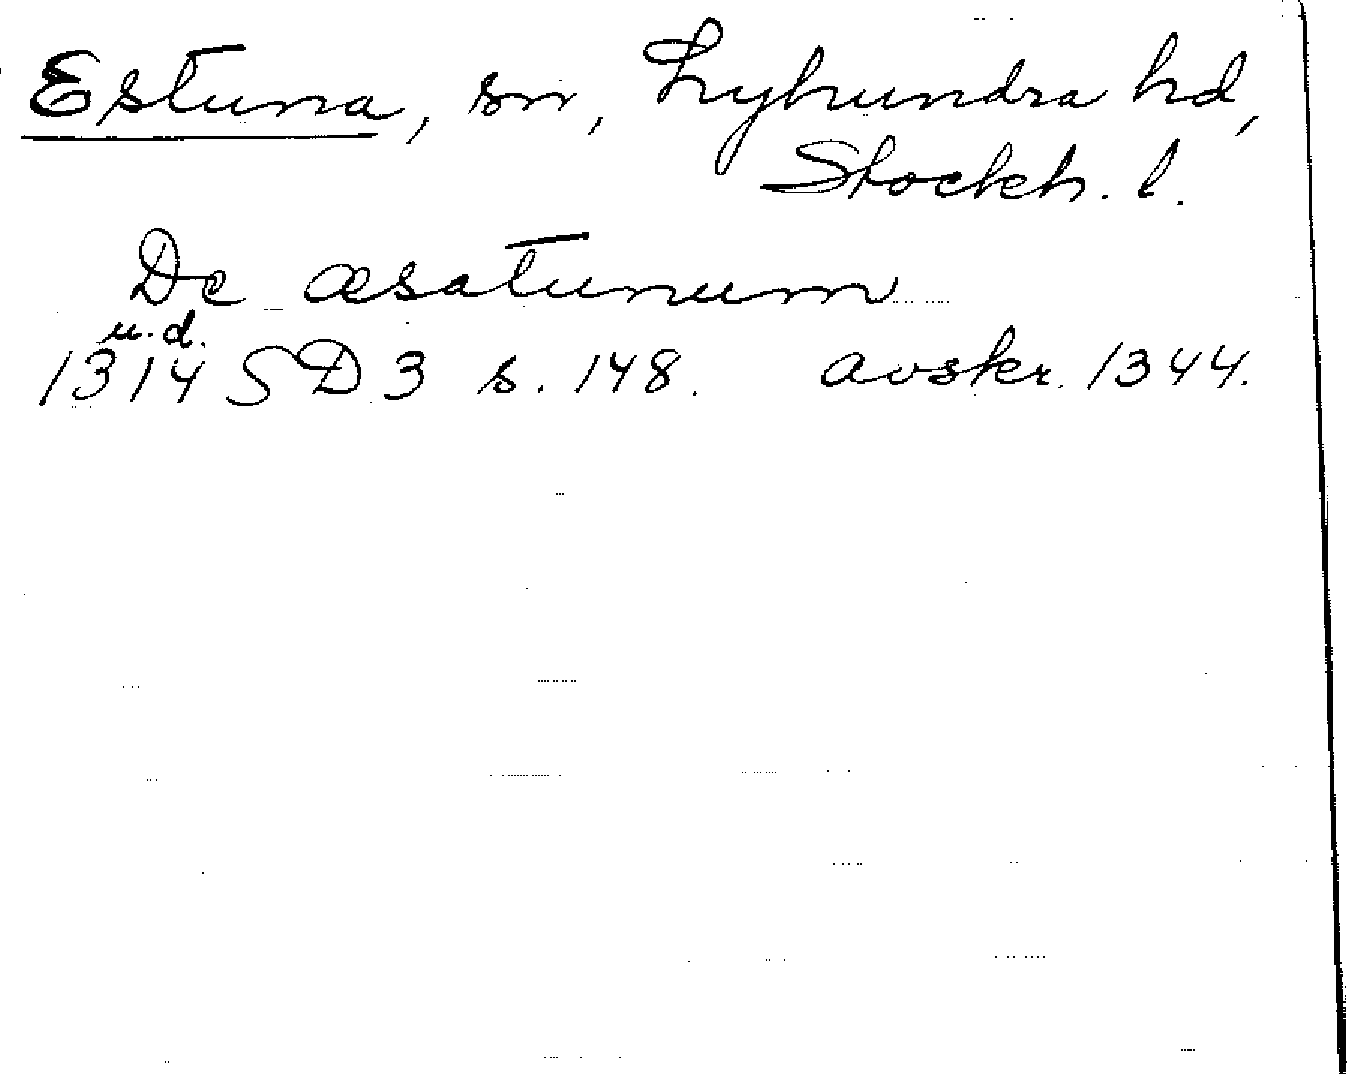 Estuna, sn, Lyhundra hd,
Stockh. l.
De æsatunum
u.d.
1314 SD 3 s. 148. avskr. 1344.